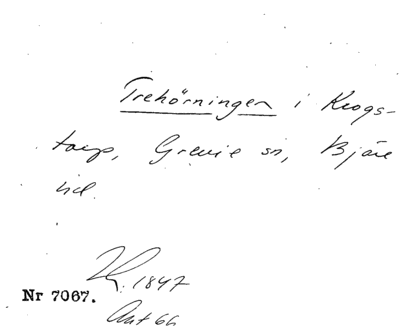 Trehörningen i Krogs-
torp, Grevie sn, Bjäre
hd.
K. 1847
Nr 7067.
Ant 66